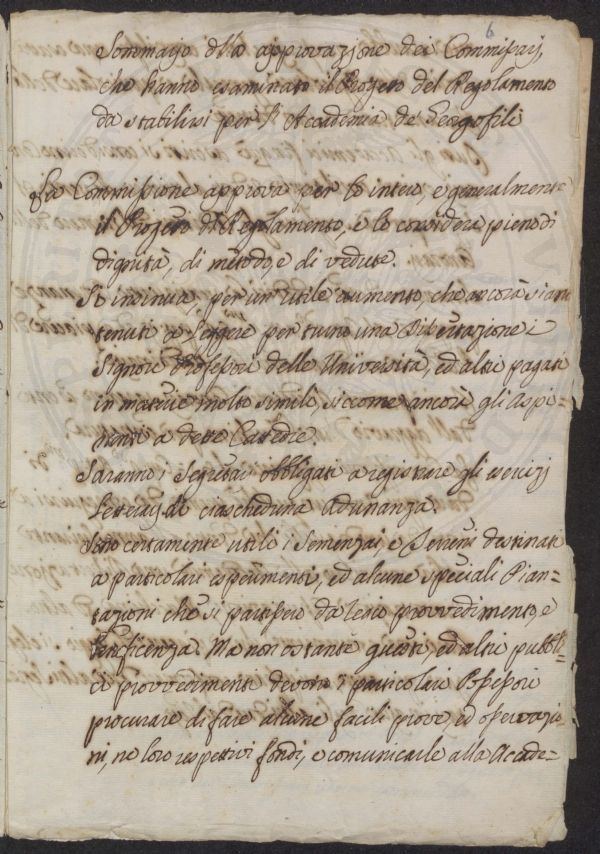 6
Sommario della approvazione dei Commissarj,
che hanno esaminato il Progeto del Regolamento
da stabilirsi per l' Accademia de' Georgofili
La Commissione approva per lo intero, e generalmente
il Progeto di Regolamento, e lo considera pieno di
dignità, di metodo, e di vedute.
Si insinua, per un' utile aumento, che ancora siano
tenuti a Leggere per turno una Dissertazione i
Signori Professori delle Università, ed altri pagati
in materie molto simili, siccome ancora gli Aspi=
ranti a dette Catedre.
Saranno i Segretari obbligati a registrare gli esercizj
Letterarj di ciascheduna Adunanza.
Sono certamente utili i Semenzai, e Terreni destinati
a particolari esperimenti, ed alcune speciali Pian=
tazioni che si partissero da Regio provvedimento, e
beneficenza. Ma non ostante questi, ed altri pubbli=
ci provvedimenti devono i particolari Possessori
procurare di fare alcune facili prove, ed osservazio=
ni, ne loro respettivi fondi, e comunicarle alla Accade=